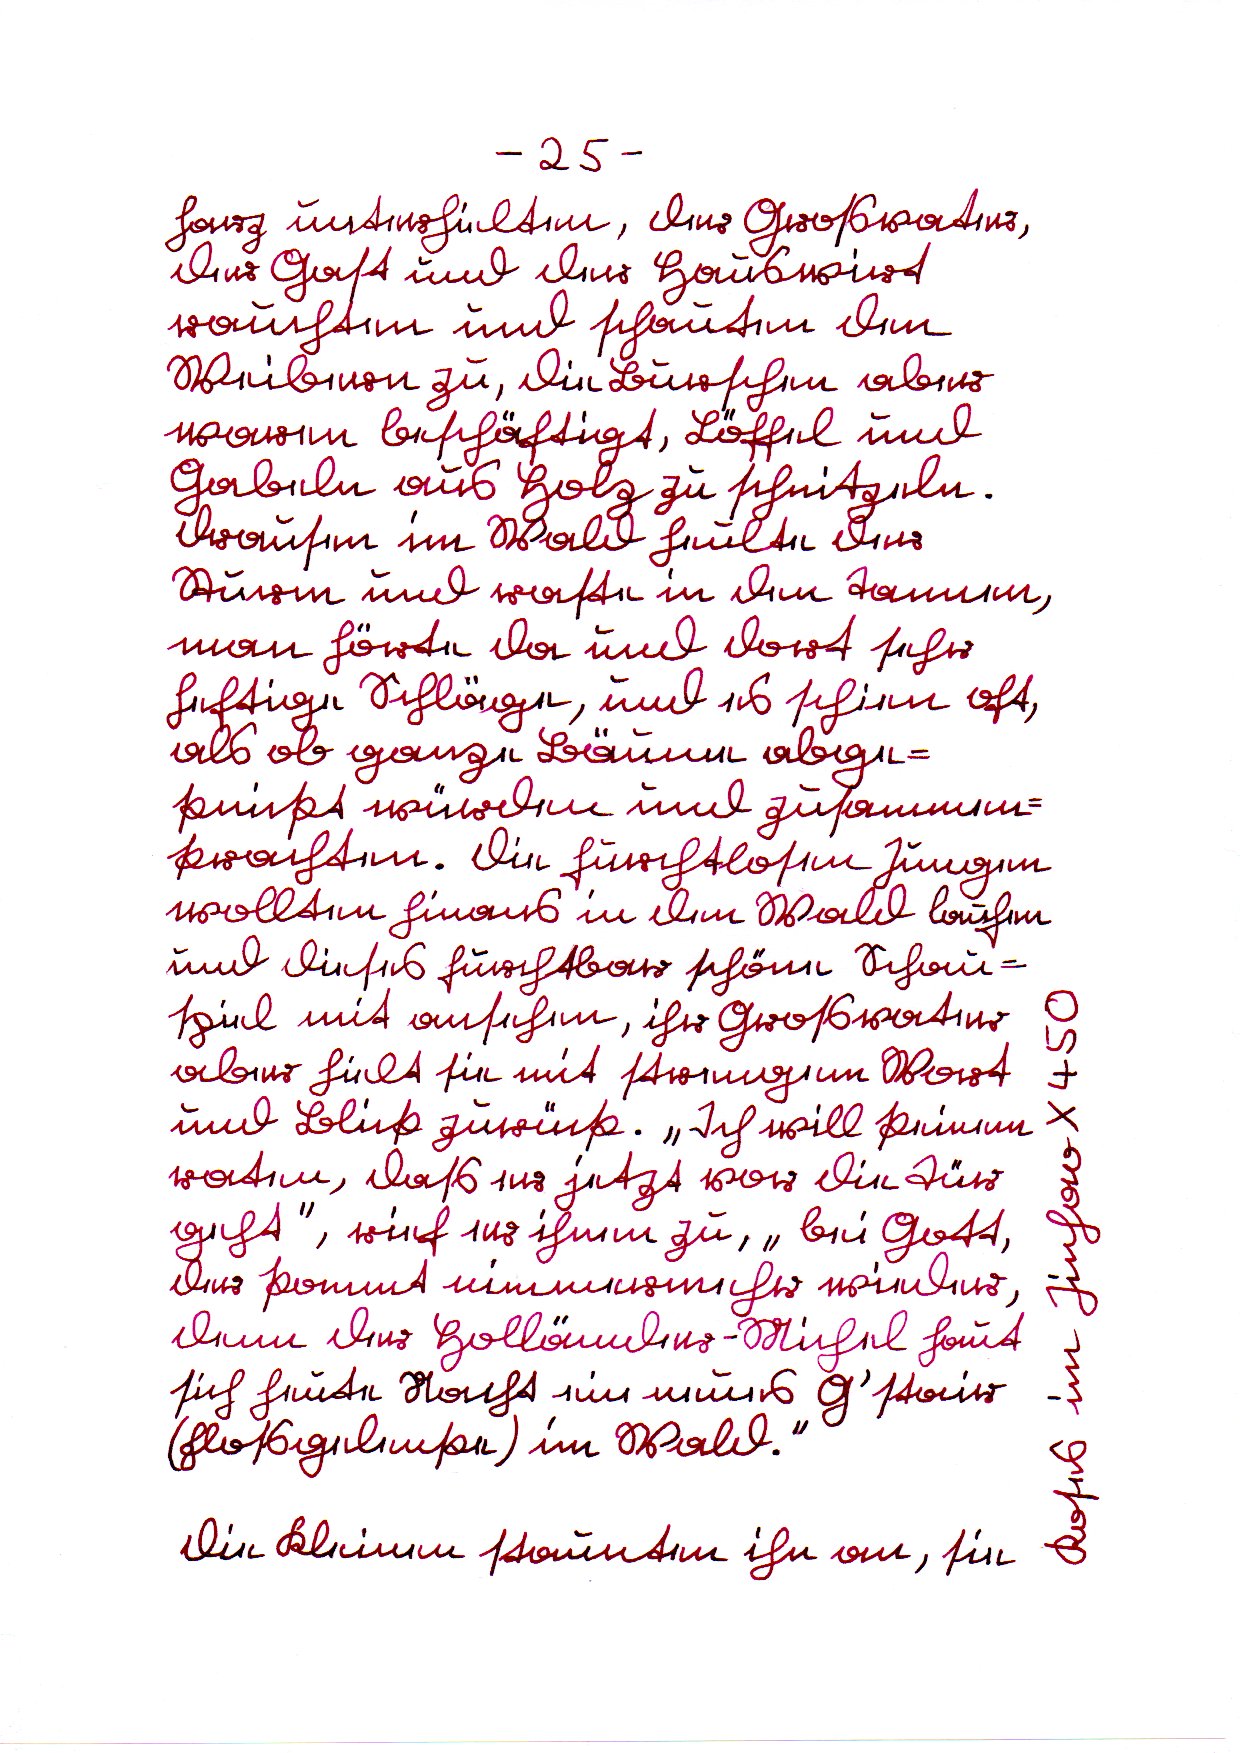 - 25 -
harz unterhielten, der Großvater,
der Gast und der Hauswirt
rauchten und schauten den
Weibern zu, die Burschen aber
waren beschäftigt, Löffel und
Gabeln aus Holz zu schnitzeln.
Drausen im Wald heulte der
Sturm und raste in den Tannen,
man hörte da und dort sehr
heftige Schläge, und es schien oft,
als ob ganze Bäume abge=
knickt würden und zusammen=
krachten. Die furchtlosen Jungen
wollten hinaus in den Wald laufen
und dieses furchtbar schöne Schau=
spiel mit ansehen, ihr Großvater
aber hielt sie mit strengem Wort
und Blick zurück. „Ich will keinem
raten, daß er jetzt vor die Tür
geht", rief er ihnen zu, „bei Gott,
der kommt nimmermehr wieder,
denn der Holländer-Michel haut
sich heute Nacht ein neues G'stair
(Floßgelenke) im Wald."
Die Kleinen staunten ihn an, sie
im Jinhao X 450